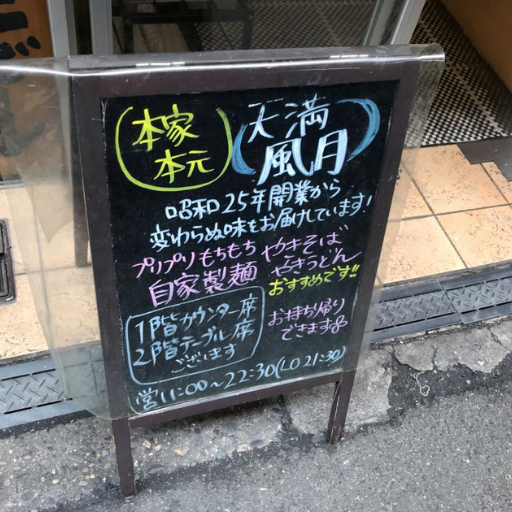 本家
本元
天満
風月
昭和25年開業から
変わらぬ味をお届けしています!
プリプリもちもち
自家製麺
やきそば
やきうどん
おすすめです!!
1階カウンター席
2階テーブル席
ございます
お持ち帰り
できます
営11:00～22:30(LO21:30)